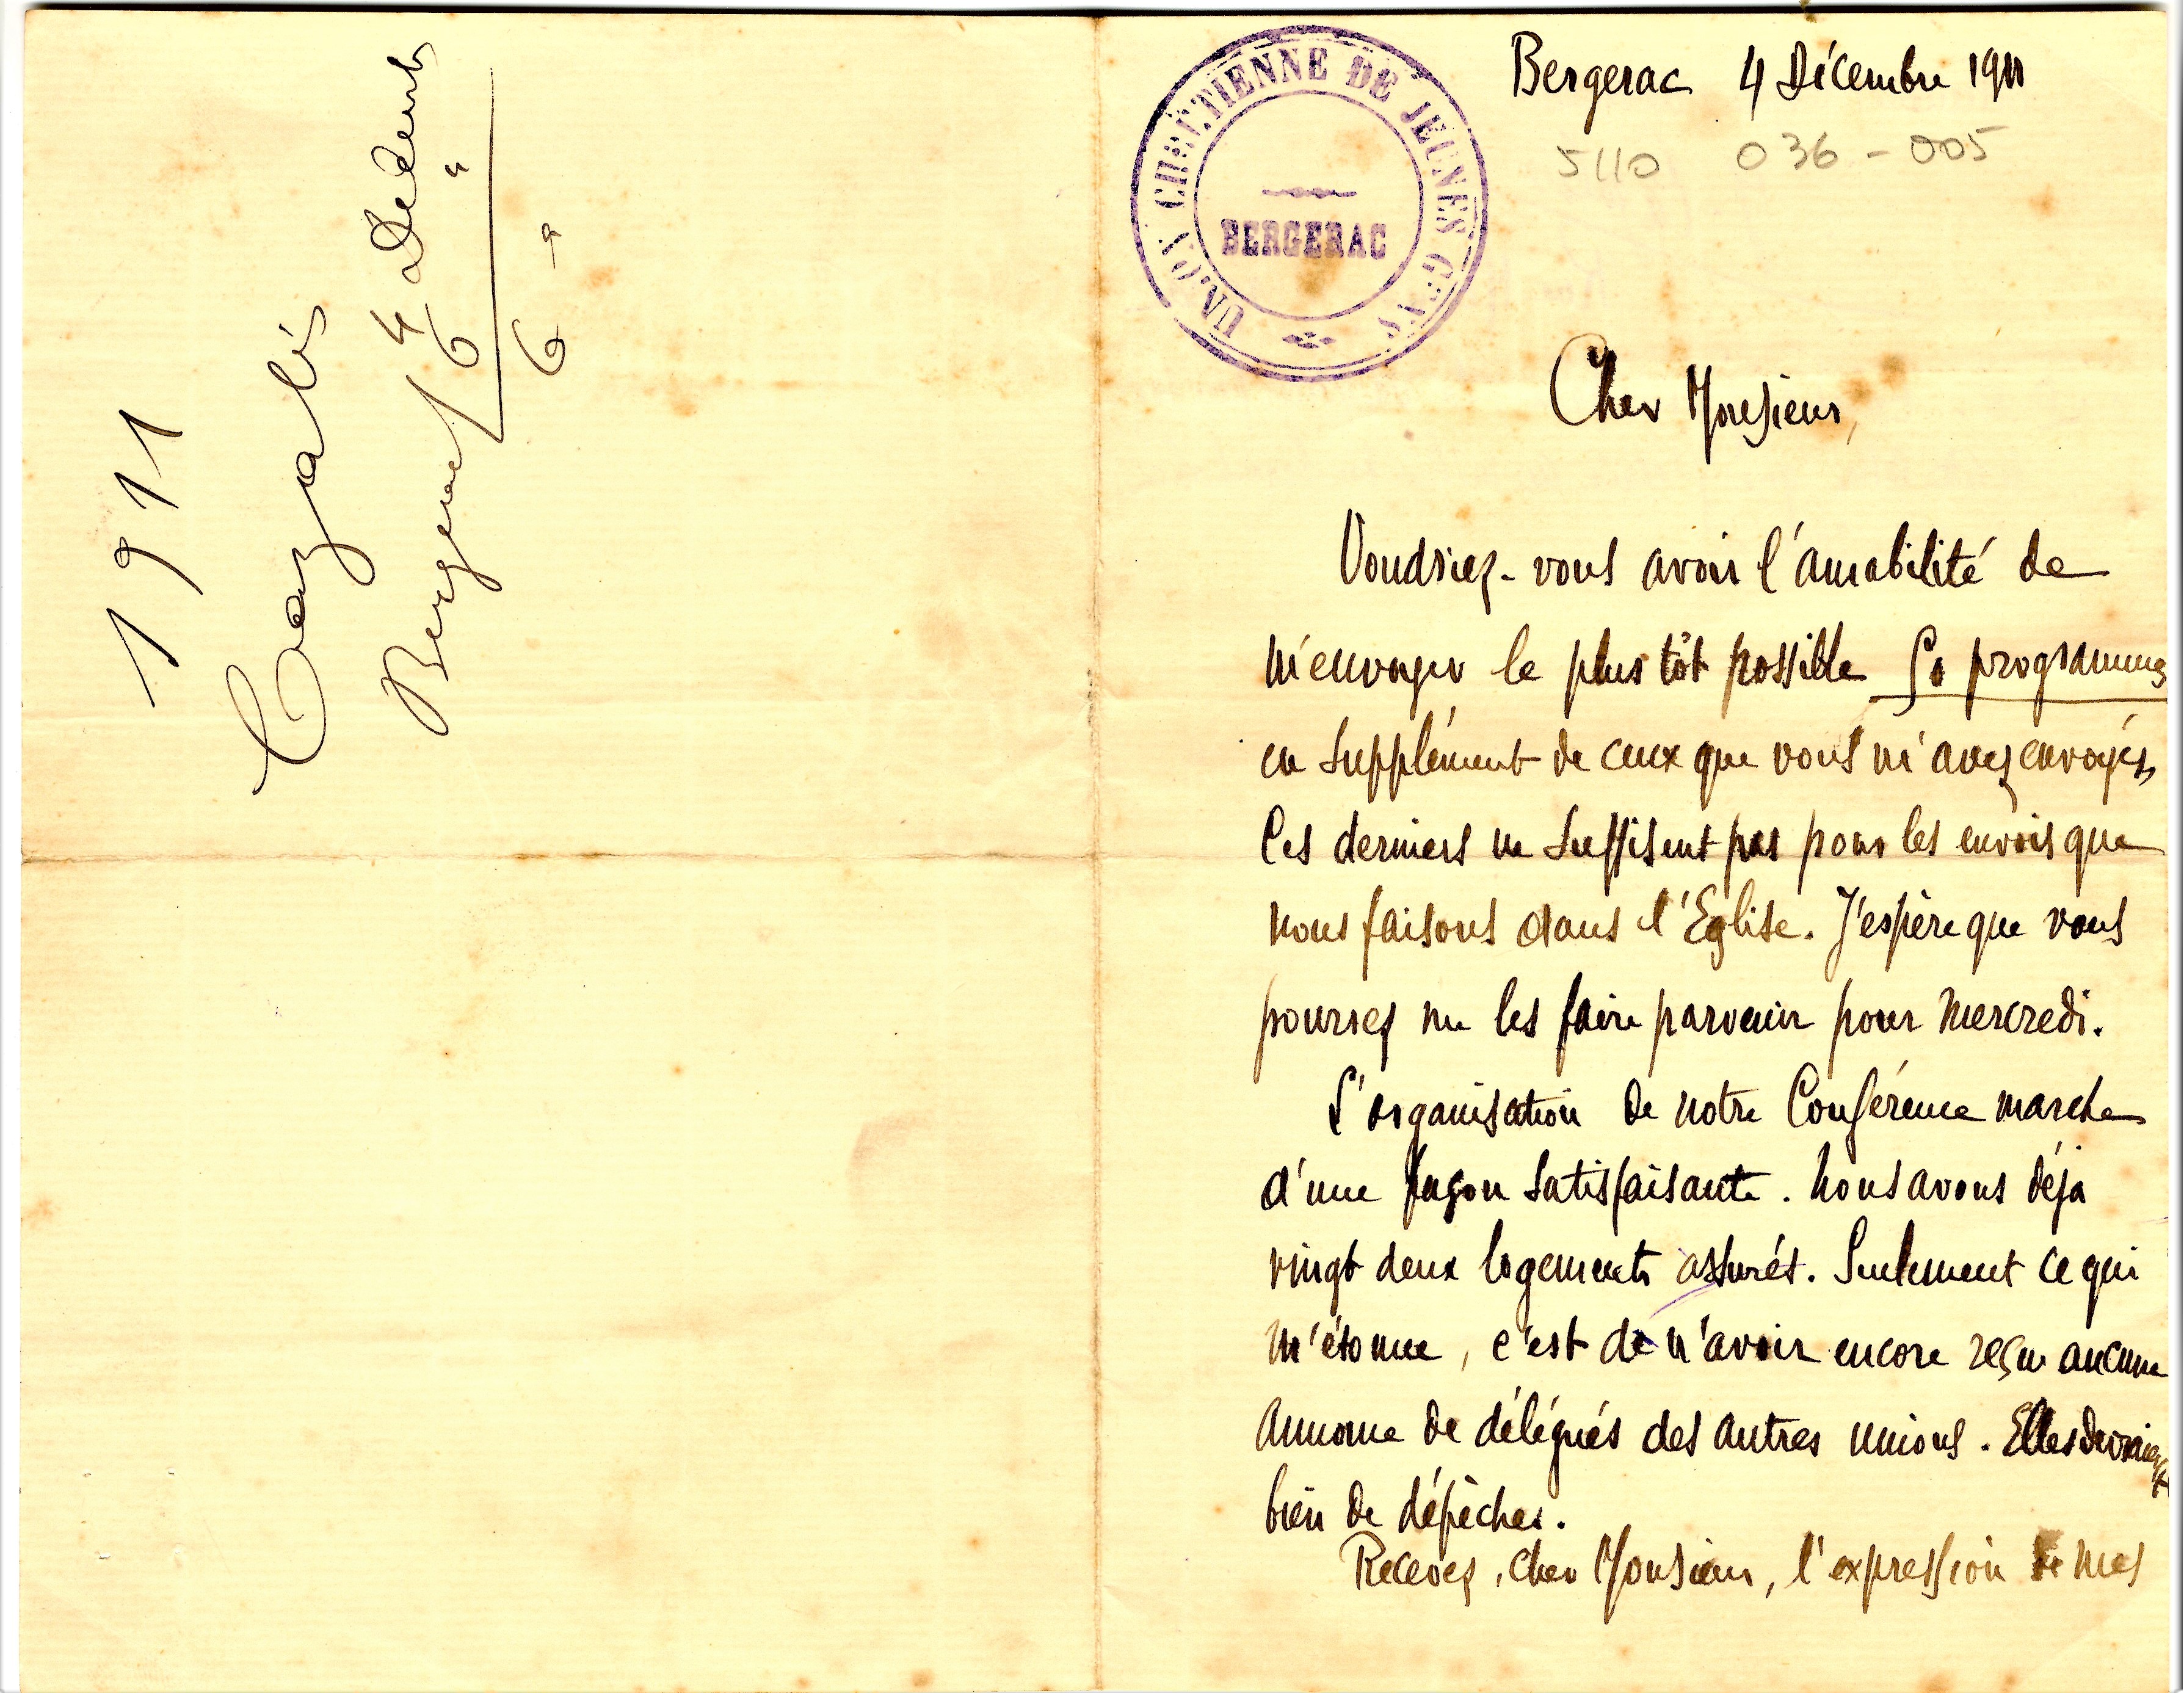 1911
Cazalis
Bergerac 4 Décemb
6 "
6 - "
UNION CHRÉTIENNE DE JEUNES GENS
BERGERAC
Bergerac 4 Décembre 1911
5110 036-005
Cher Monsieur,
Voudriez-vous avoir l'amabilité de
m'envoyer le plus tôt possible 50 programmes
en supplément de ceux que vous m'avez envoyés,
Ces derniers ne suffisent pas pour les envois que
nous faisons dans l'Eglise. J'espère que vous
pourrez me les faire parvenir pour Mercredi.
L'organisation de notre Conférence marche
d'une façon satisfaisante. Nous avons déjà
vingt deux logements assurés. Seulement ce qui
m'étonne, c'est de n'avoir encore reçu aucune
annonce de délégués des autres unions. Elles devraient
bien se dépêcher.
Recevez, cher Monsieur, l'expression de mes